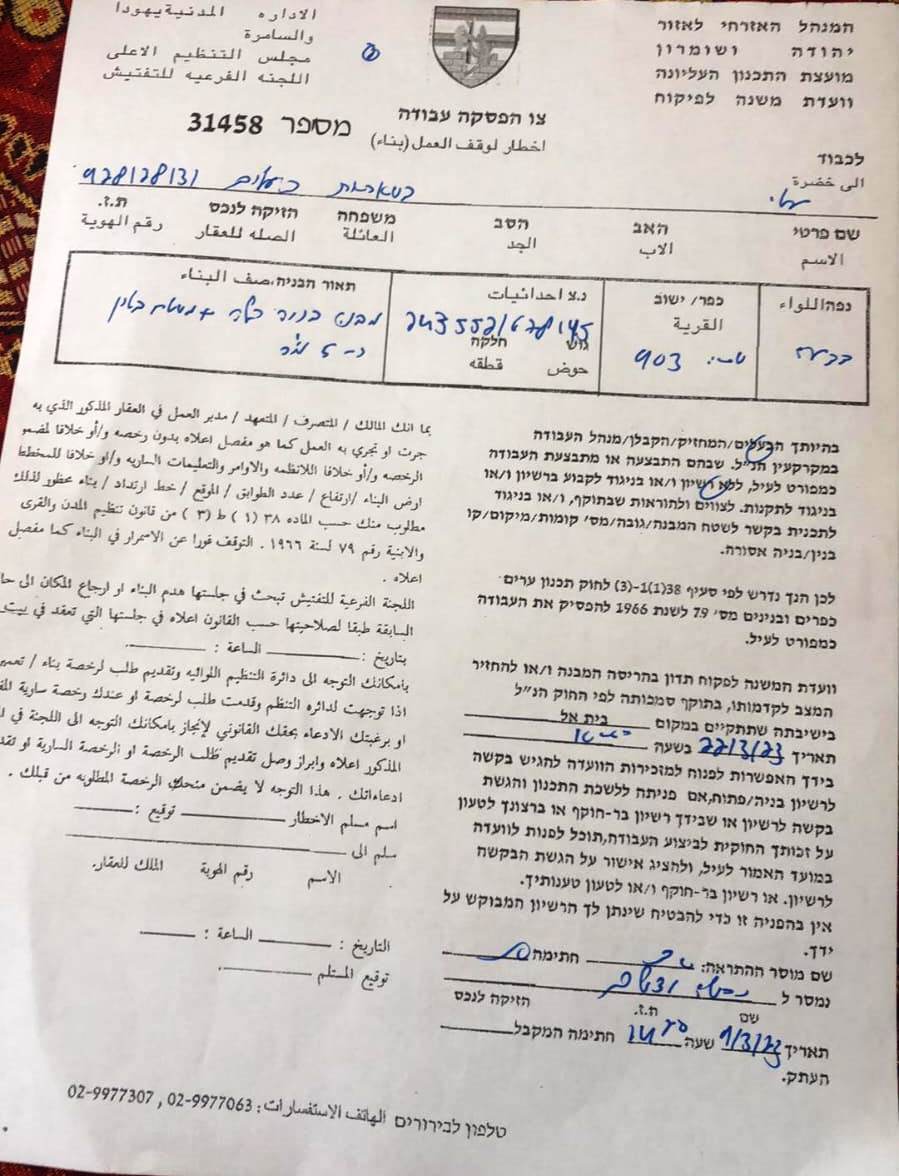 המנהל האזרחי לאזור
יהודה ושומרון
מועצת התכנון העליונה
וועדת משנה לפיקוח
الاداره المدنية يهودا
والسامرة
مجلس التنظيم الاعلى
اللجنه الفرعيه للتفتيش
צו הפסקה עבודה
מספר 31458
اخطار لوقف العمل (بناء)
לכבוד
الى حضرة
928128131
שם פרטי האב הסב משפחה הזיקה לנכס ת.ז.
الاسم الاب الجد العائلة الصله للعقار رقم الهوية
נפה\اللواء
כפר/ ישוב
القرية
903
נ.צ احداثيات
243552/628145
גוש חלקה
حوض قطقه
תאור הבניה،صف البناء
בהיותך הבעלים/המחזיק/הקבלן/מנהל העבודה
במקרקעין הנ"ל. שבהם התבצעה או מתבצעת העבודה
כמפורט לעיל, ללא רשיון ו/או בניגוד לקבוע ברשיון ו/או
בניגוד לתקנות. לצווים ולהוראות שבתוקף, ו/או בניגוד
לתכנית בקשר לשטח המבנה/גובה/מס' קומות/מיקום/קו
בנין/בניה אסורה.
לכן הנך נדרש לפי סעיף 38(1)-(3) לחוק תכנון ערים
כפרים ובנינים מס' 79 לשנת 1966 להפסיק את העבודה
כמפורט לעיל.
וועדת המשנה לפקוח תדון בהריסה המבנה ו/או להחזיר
המצב לקדמותו, בתוקף סמכותה לפי החוק הנ"ל
בישיבתה שתתקיים במקום בית אל
תאריך 22/3/23 בשעה
בידך האפשרות לפנות למזכירות הוועדה להגיש בקשה
לרשיון בניה/פתוח,אם פניתה ללשכת התכנון והגשת
בקשה לרשיון או שבידך רשיון בר-חוקף או ברצונך לטעון
על זכותך החוקית לביצוע העבודה,תוכל לפנות לוועדה
במועד האמור לעיל, ולהציג אישור על הגשת הבקשה
לרשיון. או רשיון בר-חוקף ו/או לטעון טענותיך.
אין בהפניה זו כדי להבטיח שינתן לך הרשיון המבוקש על
ידך.
שם מוסר ההתראה: חתימה
נמסר ל
שם ת.ז. הזיקה לנכס
תאריך 9/3/23 שעה חתימה המקבל
העתק.
بما انك المالك / المتصرف / المتعهد / مدير العمل في العقار المذكور الذي به
جرت او تجري به العمل كما هو مفصل اعلاه بدون رخصه و/أو خلافا لمضمو
الرخصه و/أو خلافا للانظمه والاوامر والتعليمات الساريه و/او خلافا للمخطط
ارض البناء /ارتفاع / عدد الطوابق / الموقع / خط ارتداد / بناء محظور لذلك
مطلوب منك حسب الماده ٣٨ (١) ط (٣) من قانون تنظيم المدن والقرى
والابنية رقم ٧٩ لسنة ١٩٦٦ . التوقف فورا عن الاسمرار في البناء كما مفصل
اعلاه .
اللجنة الفرعية للتفتيش تبحث في جلستها هدم البناء او ارجاع المكان الى حا
السابقة طبقا لصلاحيتها حسب القانون اعلاه في جلستها التي تعقد في بيت
بتاريخ : الساعة :
بامكانك التوجه الى دائرة التنظيم اللوائيه وتقديم طلب لرخصة بناء / تعمير
اذا توجهت لدائره التنظم وقدمت طلب لرخصة او عندك رخصة سارية المف
او برغبتك الادعاء بحقك القانوني لإنجاز بامكانك التوجه الى اللجنة في الم
المذكور اعلاه وابراز وصل تقديم طلب الرخصة او الرخصة السارية او تقد
ادعاءاتك . هذا التوجه لا يضمن منحك الرخصة المطلوبه من قبلك .
اسم مسلم الاخطار توقيع :
سلم الى
الاسم رقم الهوية الملك للعقار.
التاريخ : الساعة :
توقيع المستلم
טלפון לבירורים الهاتف الاستفسارات : 02-9977063 , 02-9977307